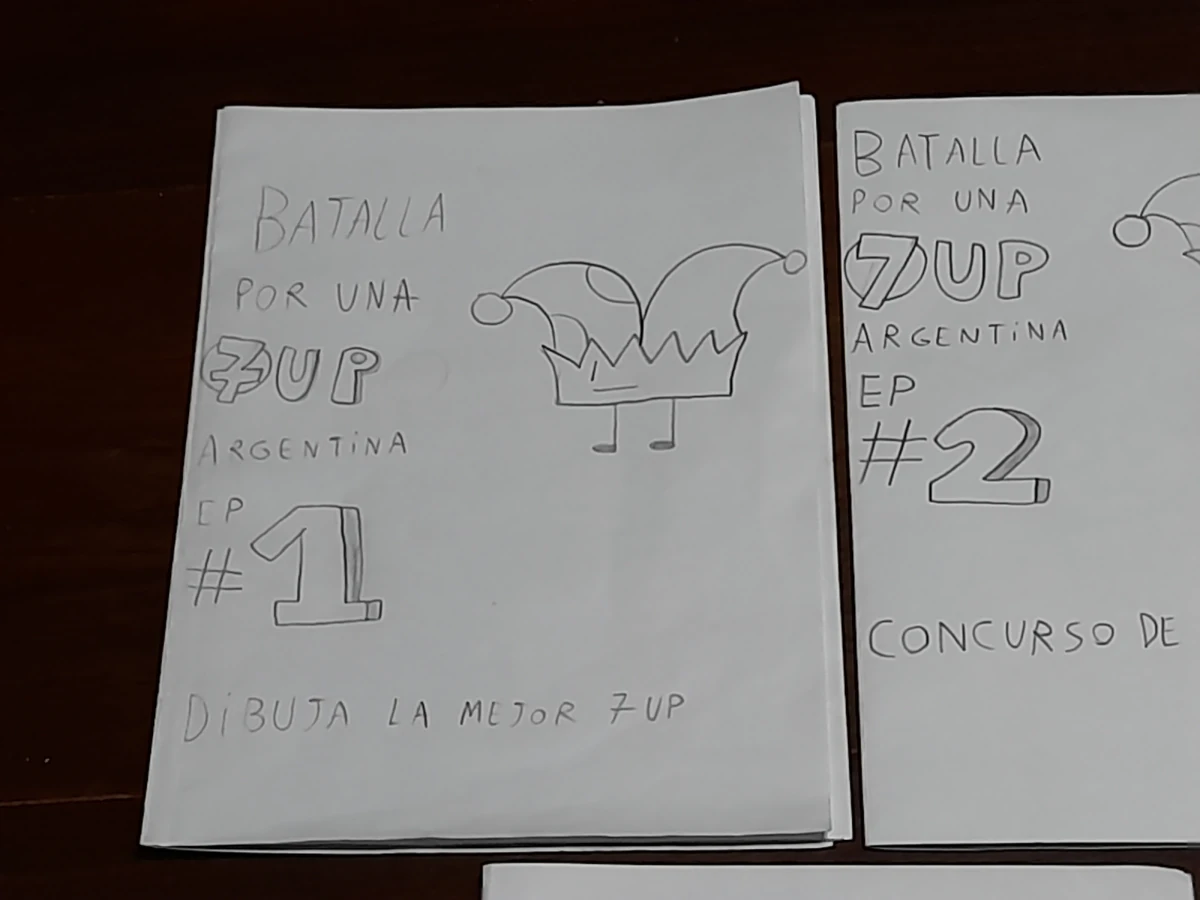 BATALLA
POR UNA
7UP
ARGENTiNA
EP
#1
DiBUJA LA MEJOR 7UP
BATALLA
POR UNA
7UP
ARGENTiNA
EP
#2
CONCURSO DE